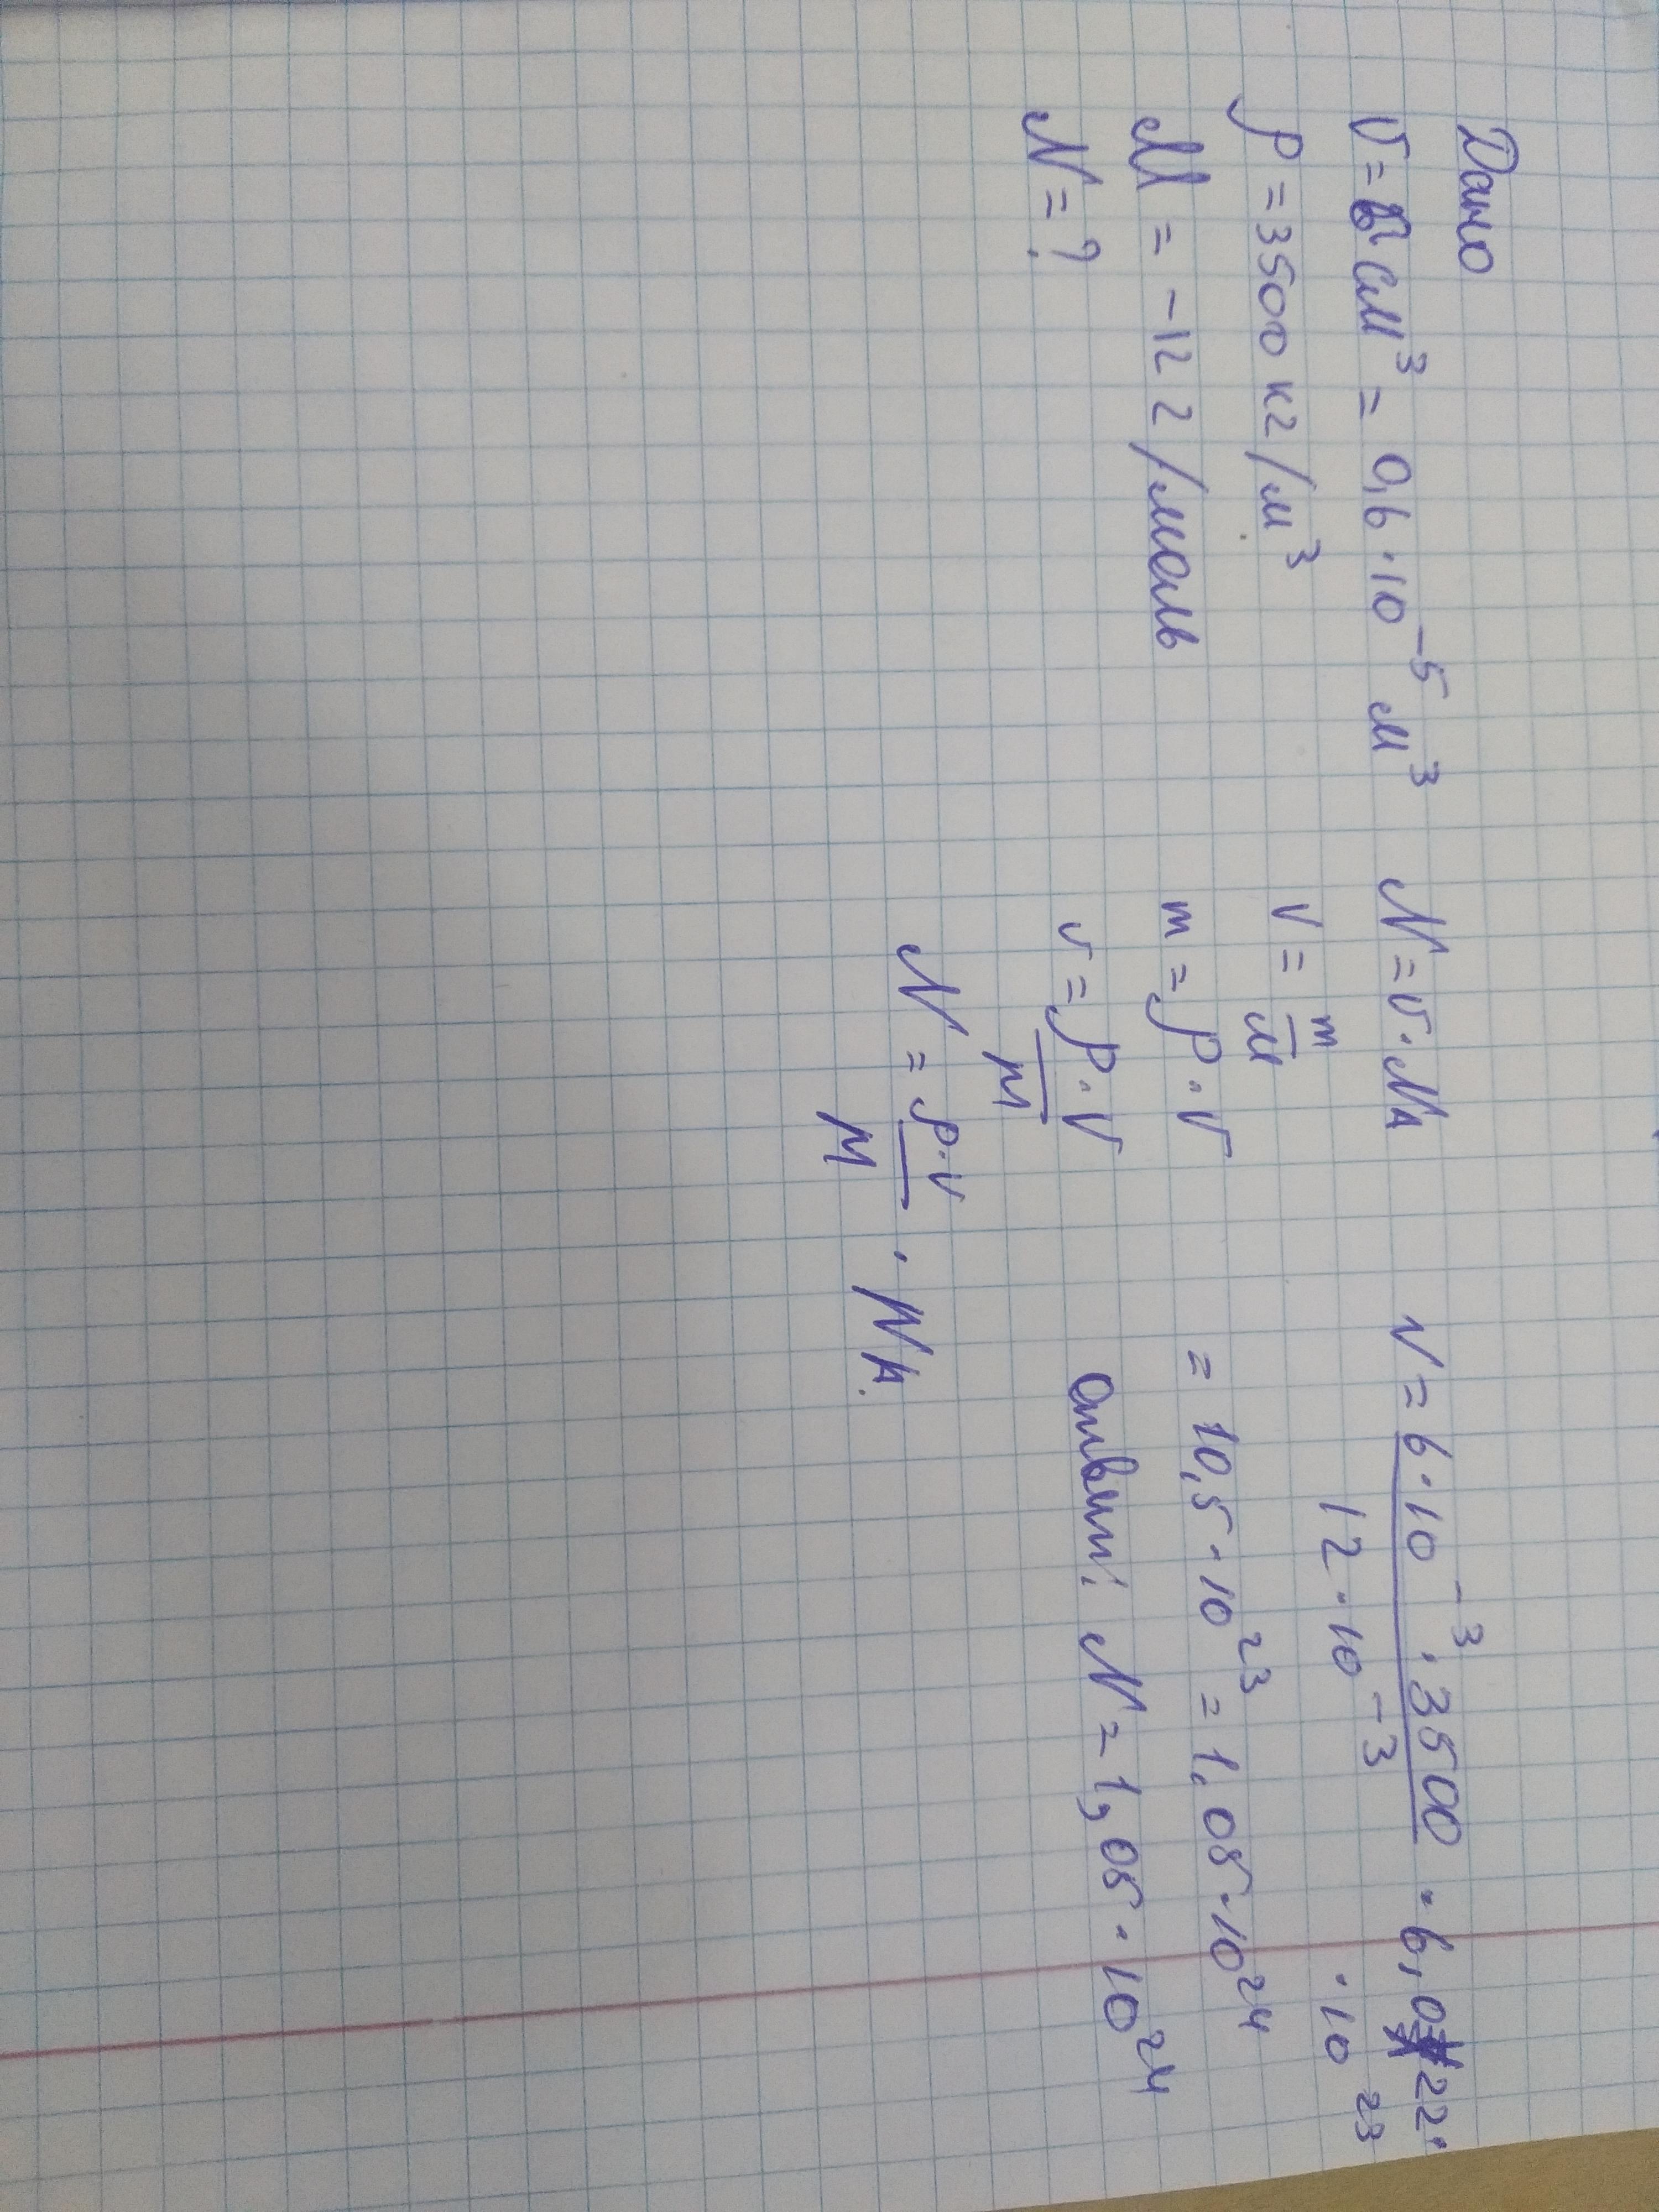 Дано
V = 6 см³ = 0,6 · 10⁻⁵ м³
ρ = 3500 кг/м³
M = -12 г/моль
N = ?
N = ν · Nₐ
ν = m/M
m = ρ · V
ν = ρ · V/M
N = ρ · V/M · Nₐ.
N = 6 · 10⁻³ · 3500/12 · 10⁻³ · 6,022 ·
· 10²³
= 10,5 · 10²³ = 1,05 · 10²⁴
Ответ: N = 1,05 · 10²⁴